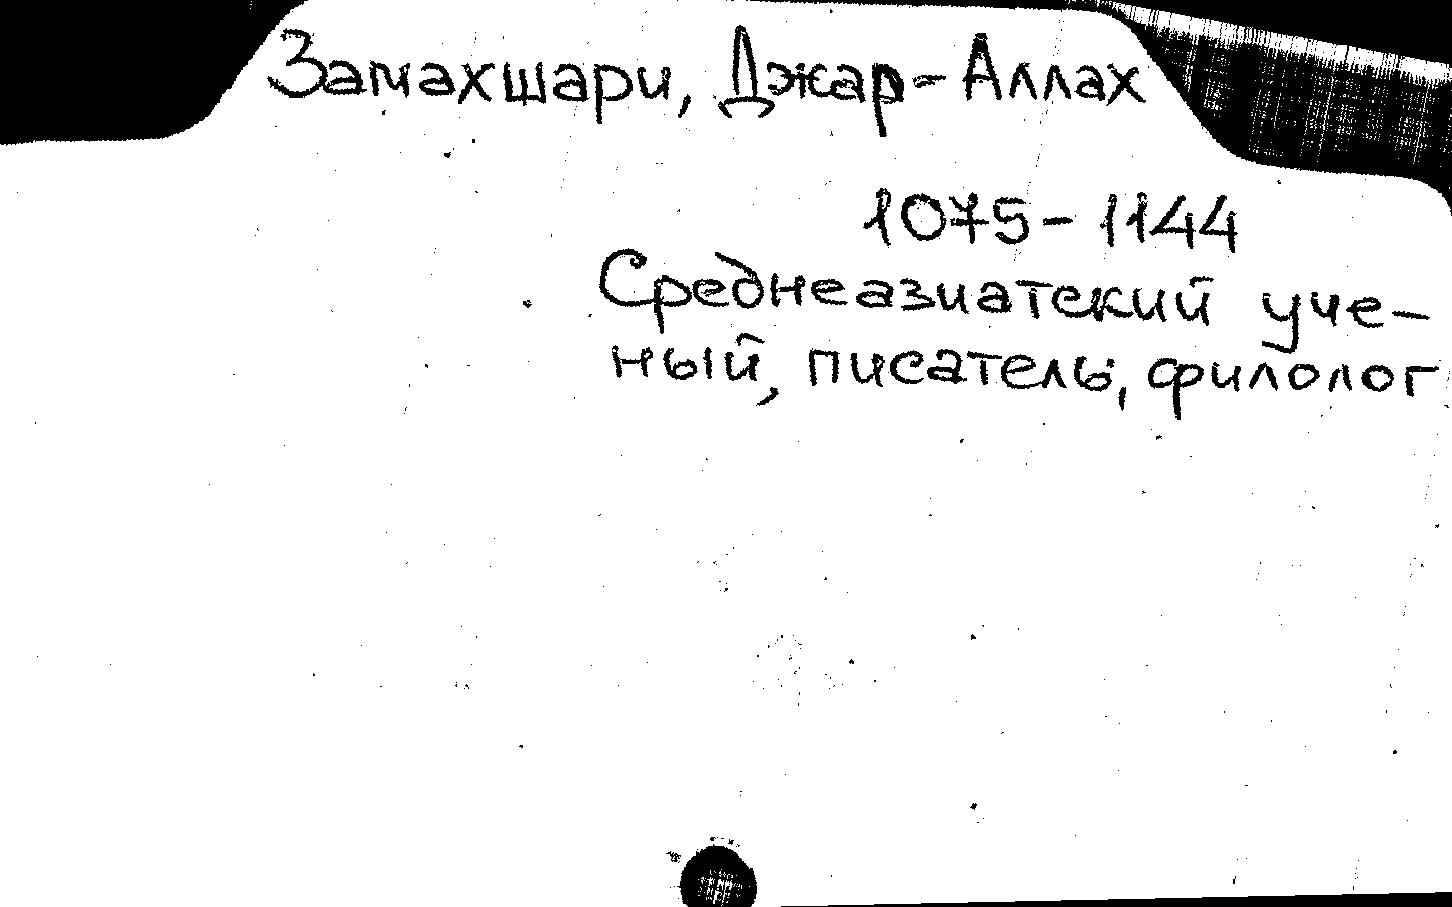 Замахшари, Джар-Аллах
1075-1144
Среднеазиатский уче-
ный, писатель, филолог